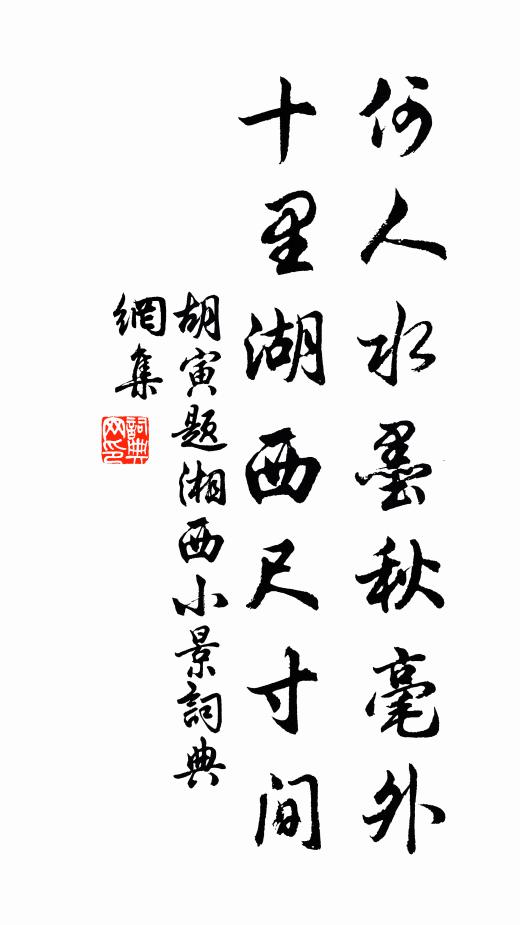 何人水墨秋毫外
十里湖西尺寸间
胡寅题湘西小景詞典
網集
詞典
网印